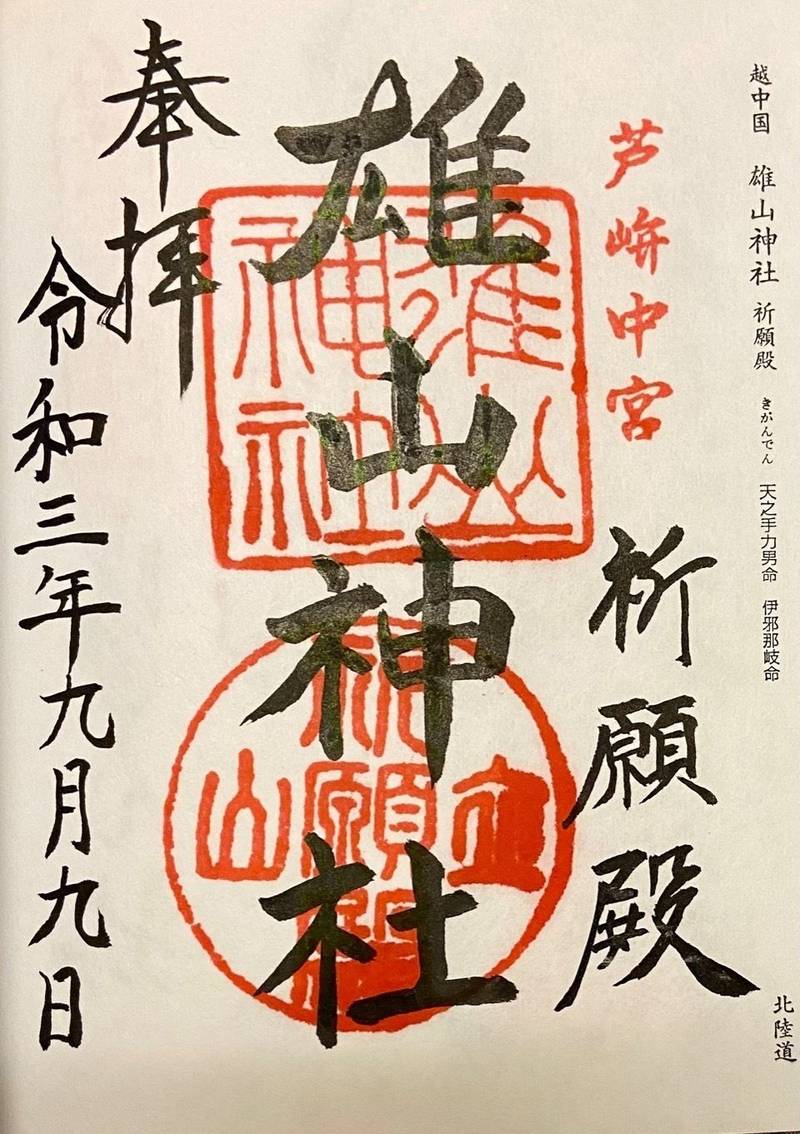 越中国 雄山神社 祈願殿 きがんでん 天之手力男命 伊邪那岐命
北陸道
芦峅中宮
祈願殿
雄山神社
雄山
神社
立山
祈願殿
奉拝
令和三年九月九日